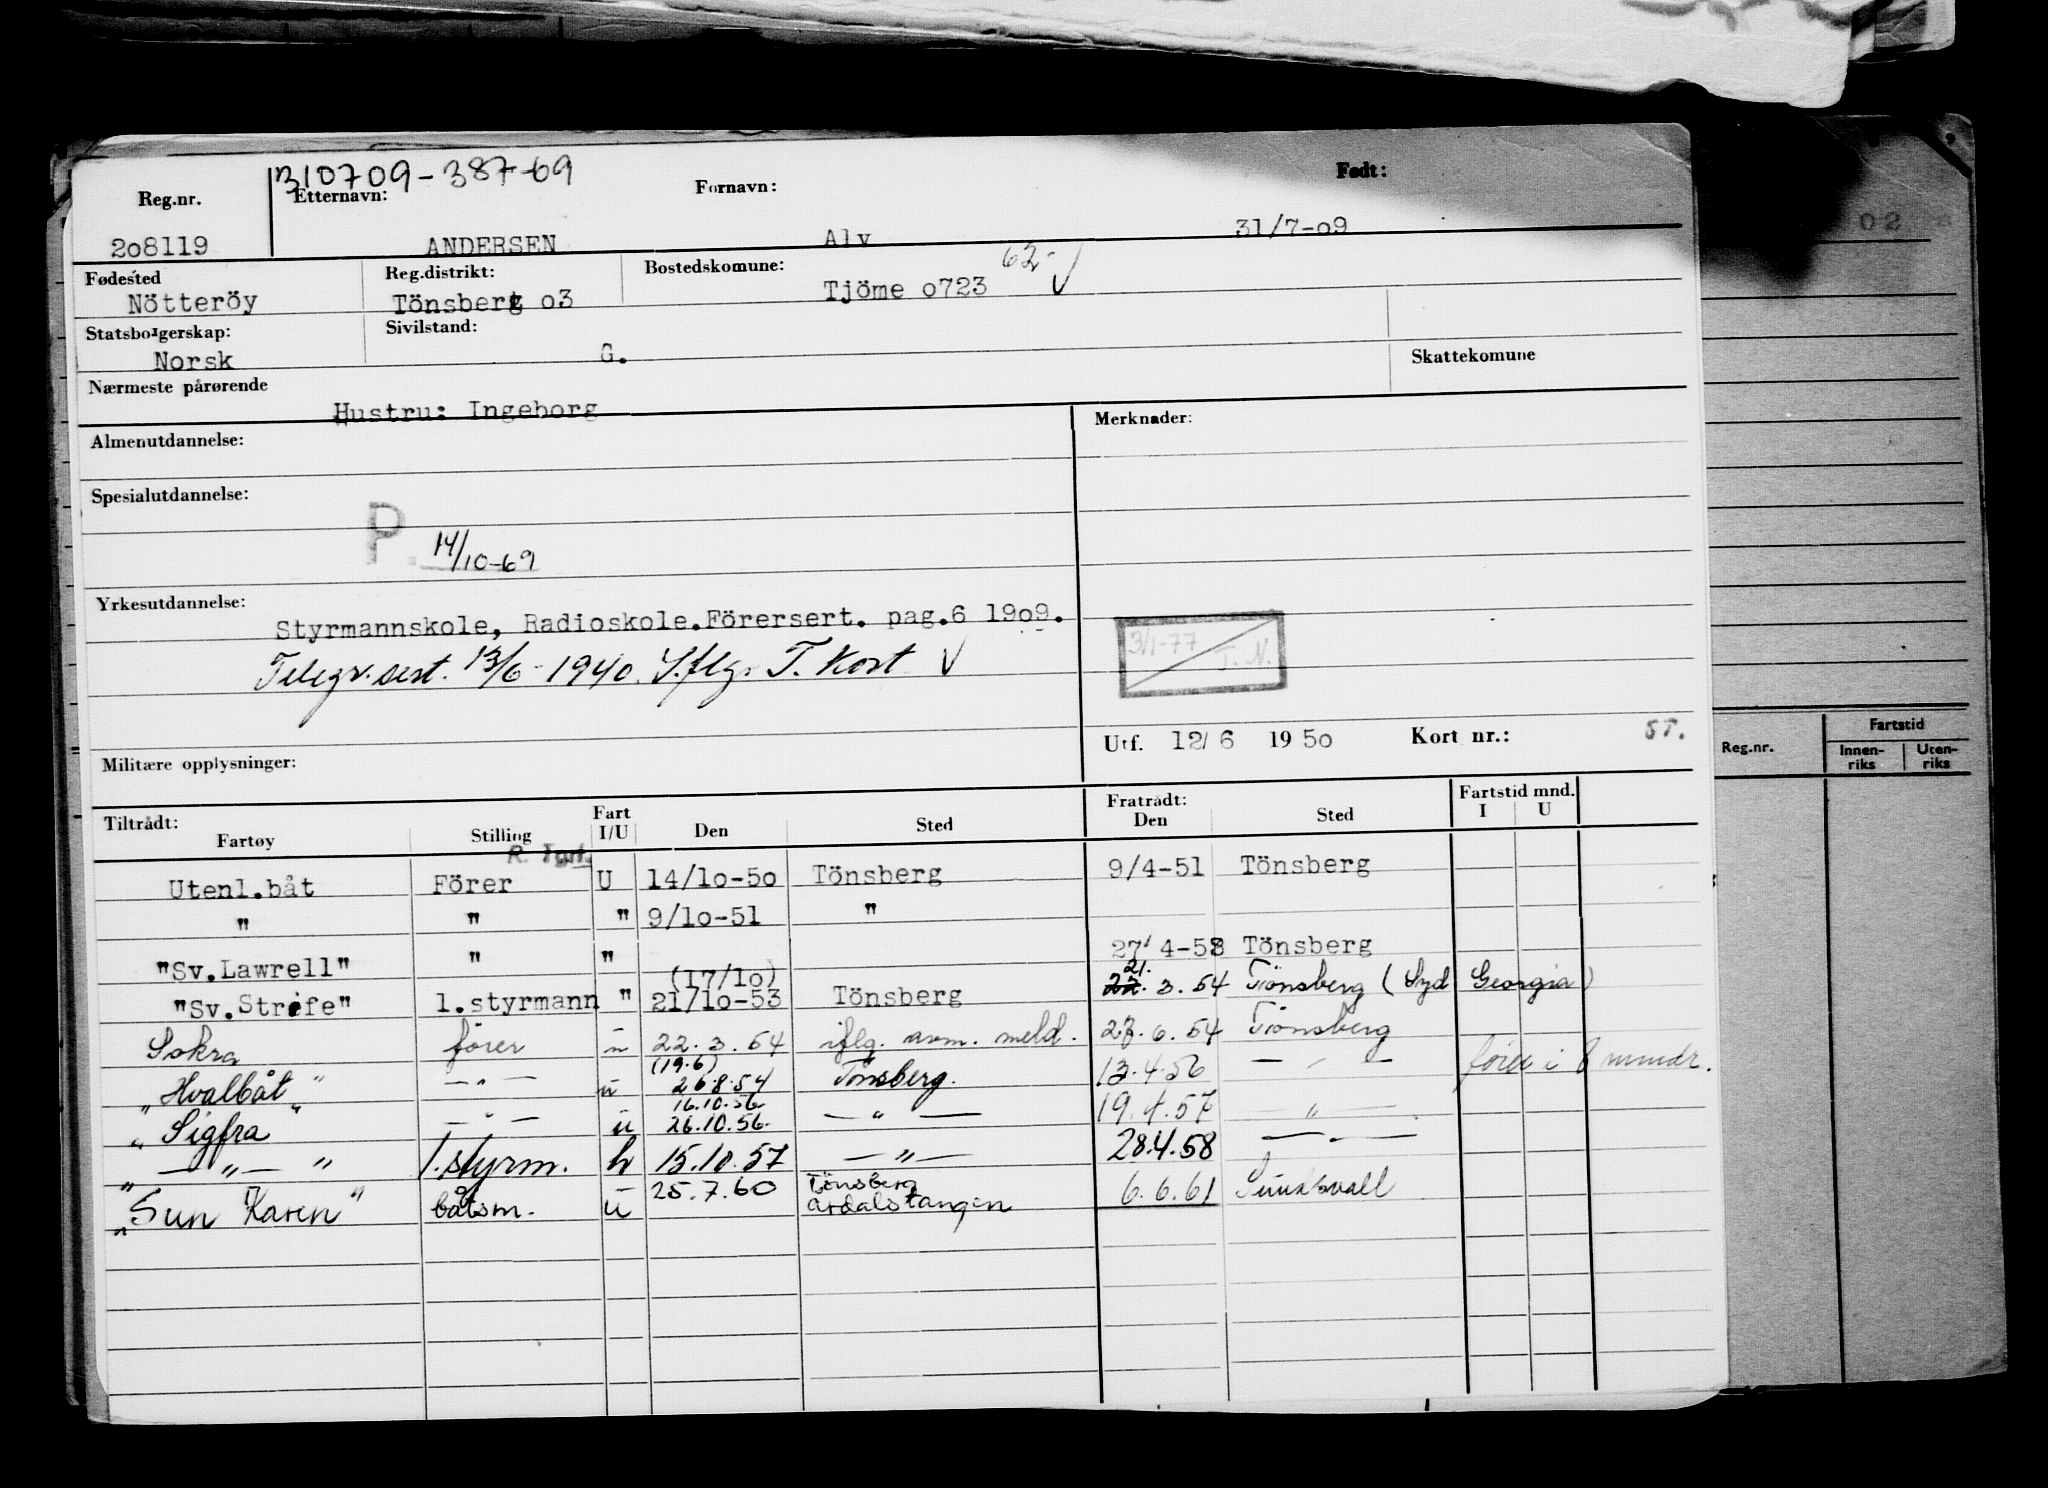 310709-387-69
Reg.nr. Etternavn: Fornavn: Født:
208119 ANDERSEN Alv 31/7-09
02
Fødested Reg.distrikt: Bostedskomune: 62-
Nötteröy Tönsberg 03 Tjöme 0723 √
Statsborgerskap: Sivilstand:
Norsk G. Skattekomune
Nærmeste pårørende
Hustru: Ingeborg
Almenutdannelse: Merknader:
Spesialutdannelse:
P. 14/10-69
Yrkesutdannelse:
Styrmannskole, Radioskole.Förersert. pag.6 1909.
Telegr.sert. 13/6-1940. I.flg. T. Kort √
3/1-77 T. N.
Utf. 12/6 1950 Kort nr.: ST.
Militære opplysninger:
Tiltrådt: Fart Fratrådt: Fartstid mnd.
Fartøy Stilling I/U Den Sted Den Sted I U
Utenl.båt Förer U 14/10-50 Tönsberg 9/4-51 Tönsberg
" " " 9/10-51 "
"Sv.Lawrell" " " 27/4-53 Tönsberg
(17/10) 21.
"Sv.Strife" 1.styrmann " 21/10-53 Tönsberg 22. 3. 54 Tönsberg (Syd Georgia)
Sokra förer u 22. 3. 54 iflg. avm. meld. 28. 6. 54 Tönsberg
(19.6)
"Hvalbåt" —"— u 26.8.54 Tönsberg. 13.4.56 — " — förer i 8 mndr.
16.10.56
"Sigfra —"— u 26.10.56. —"— 19.4.57 —"—
" —"— " 1.styrm. h 15.10.57 —"— 28.4.58 —"—
"Sun Karen" båtsm. u 25.7.60 Tönsberg 6.6.61 Sundsvall
Årdalstangen
Reg.nr. Fartstid
Innen-riks Uten-riks